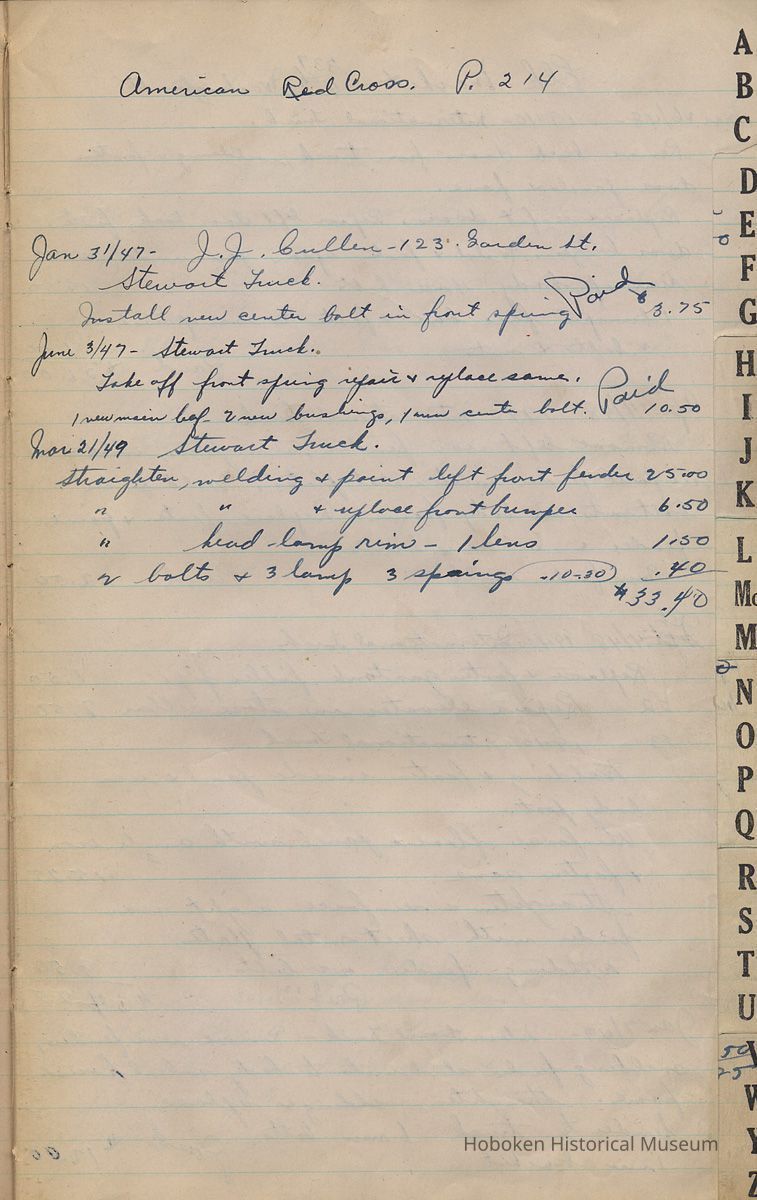 American Red Cross. P. 214
Jan 31/47- J.J. Cullen - 123 Garden St.
Stewart Truck.
Install new center bolt in front spring Paid $3.75
June 3/47 - Stewart Truck.
Take off front spring repair & replace same.
1 new main leaf 2 new bushings, 1 new center bolt. Paid 10.50
Mar 21/49 Stewart Truck.
Straighten, welding & paint left front fender 25.00
" " & replace front bumper 6.50
" head-lamp rim - 1 lens 1.50
2 bolts & 3 lamp 3 springs .10-.30) .40
$33.40
A
B
C
D
E
F
G
H
I
J
K
L
Mc
M
N
O
P
Q
R
S
T
U
V
W
Y
Z
50
25
Hoboken Historical Museum